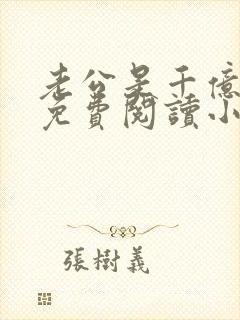 老公是千億
免費閱讀小
張樹義